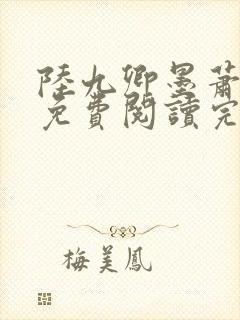 陸九卿墨蕭
免費閱讀完
梅美鳳